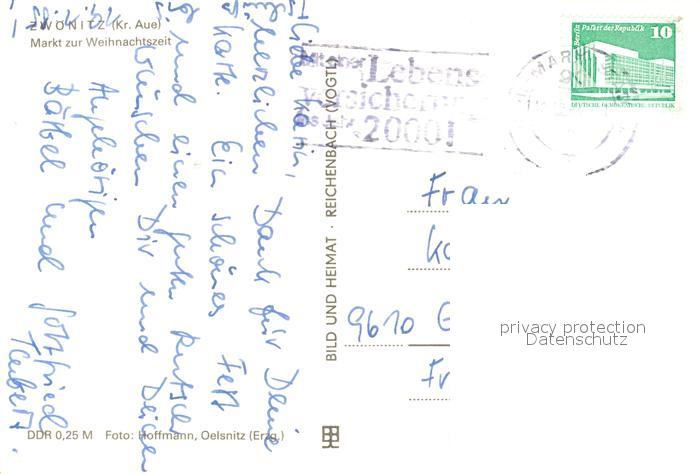 ZWÖNITZ (Kr. Aue)
Markt zur Weihnachtszeit
Liebe Karin,
herzlichen Dank für Deine
Karte. Ein schönes Fest
und einen guten Rutsch
wünschen Dir und Deinen
Angehörigen
Bärbel und Gottfried
BILD UND HEIMAT · REICHENBACH (VOGTL)
Lebens
versicherung
2000!
MARK
Berlin Palast der Republik 10
DEUTSCHE DEMOKRATISCHE REPUBLIK
Frau
9610 G
Fr
privacy protection
Datenschutz
DDR 0,25 M Foto: Hoffmann, Oelsnitz (Erzg.)